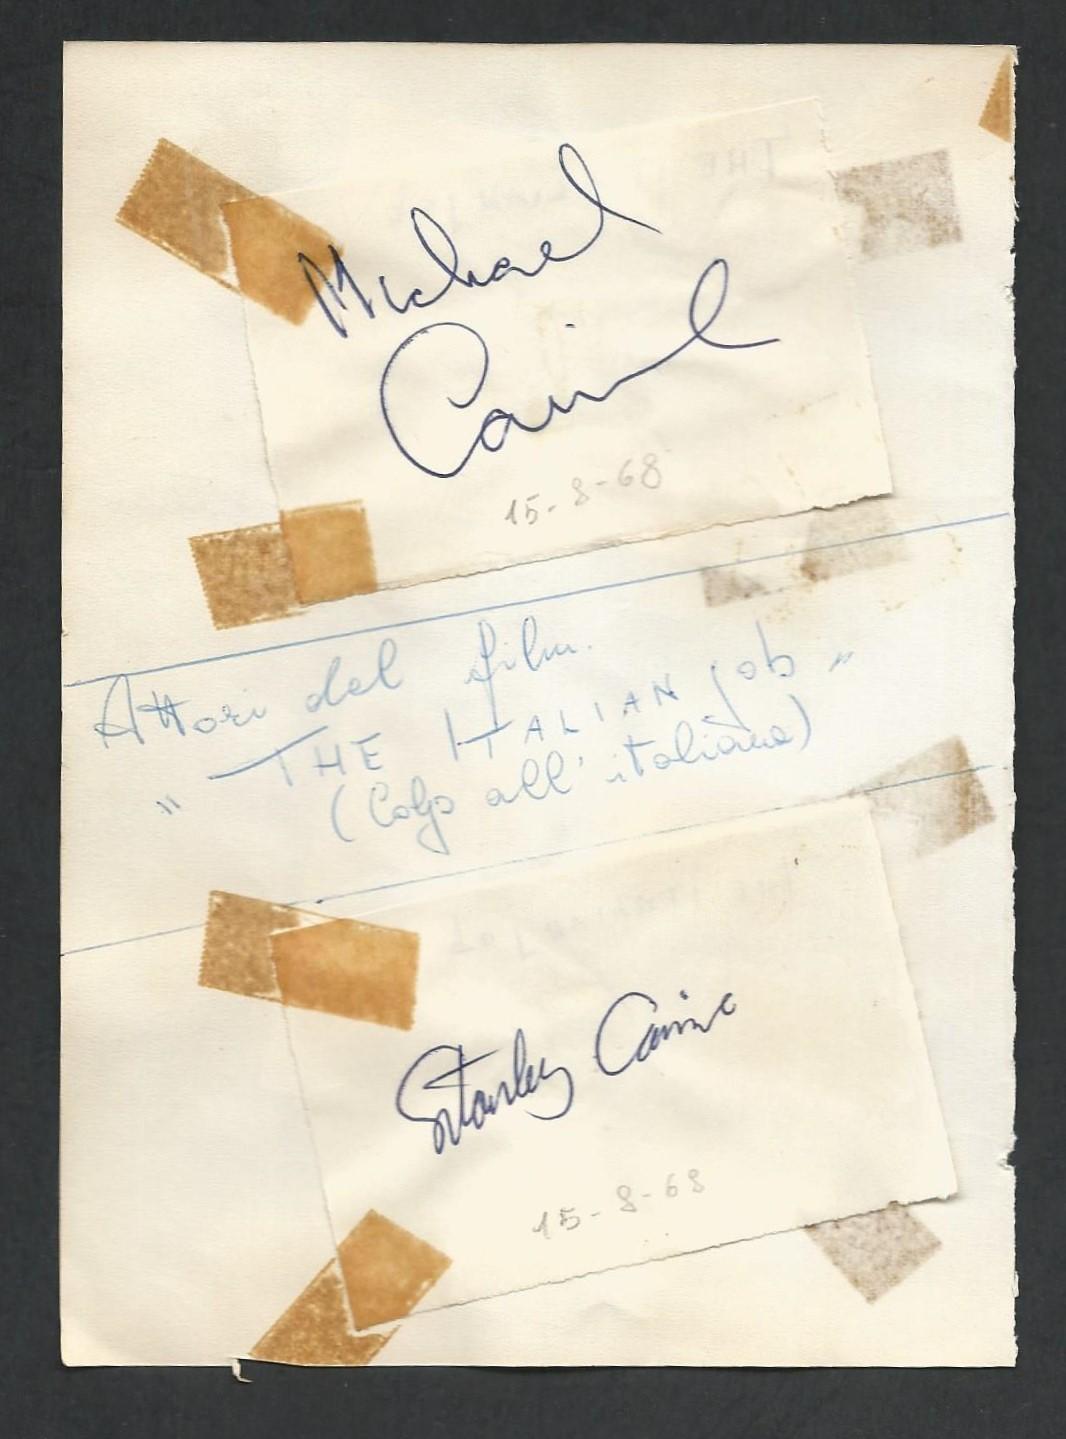 Michael
Caine
15-8-68
Attori del film.
"THE ITALIAN job"
(Colpo all'italiana)
Stanley Caine
15-8-68